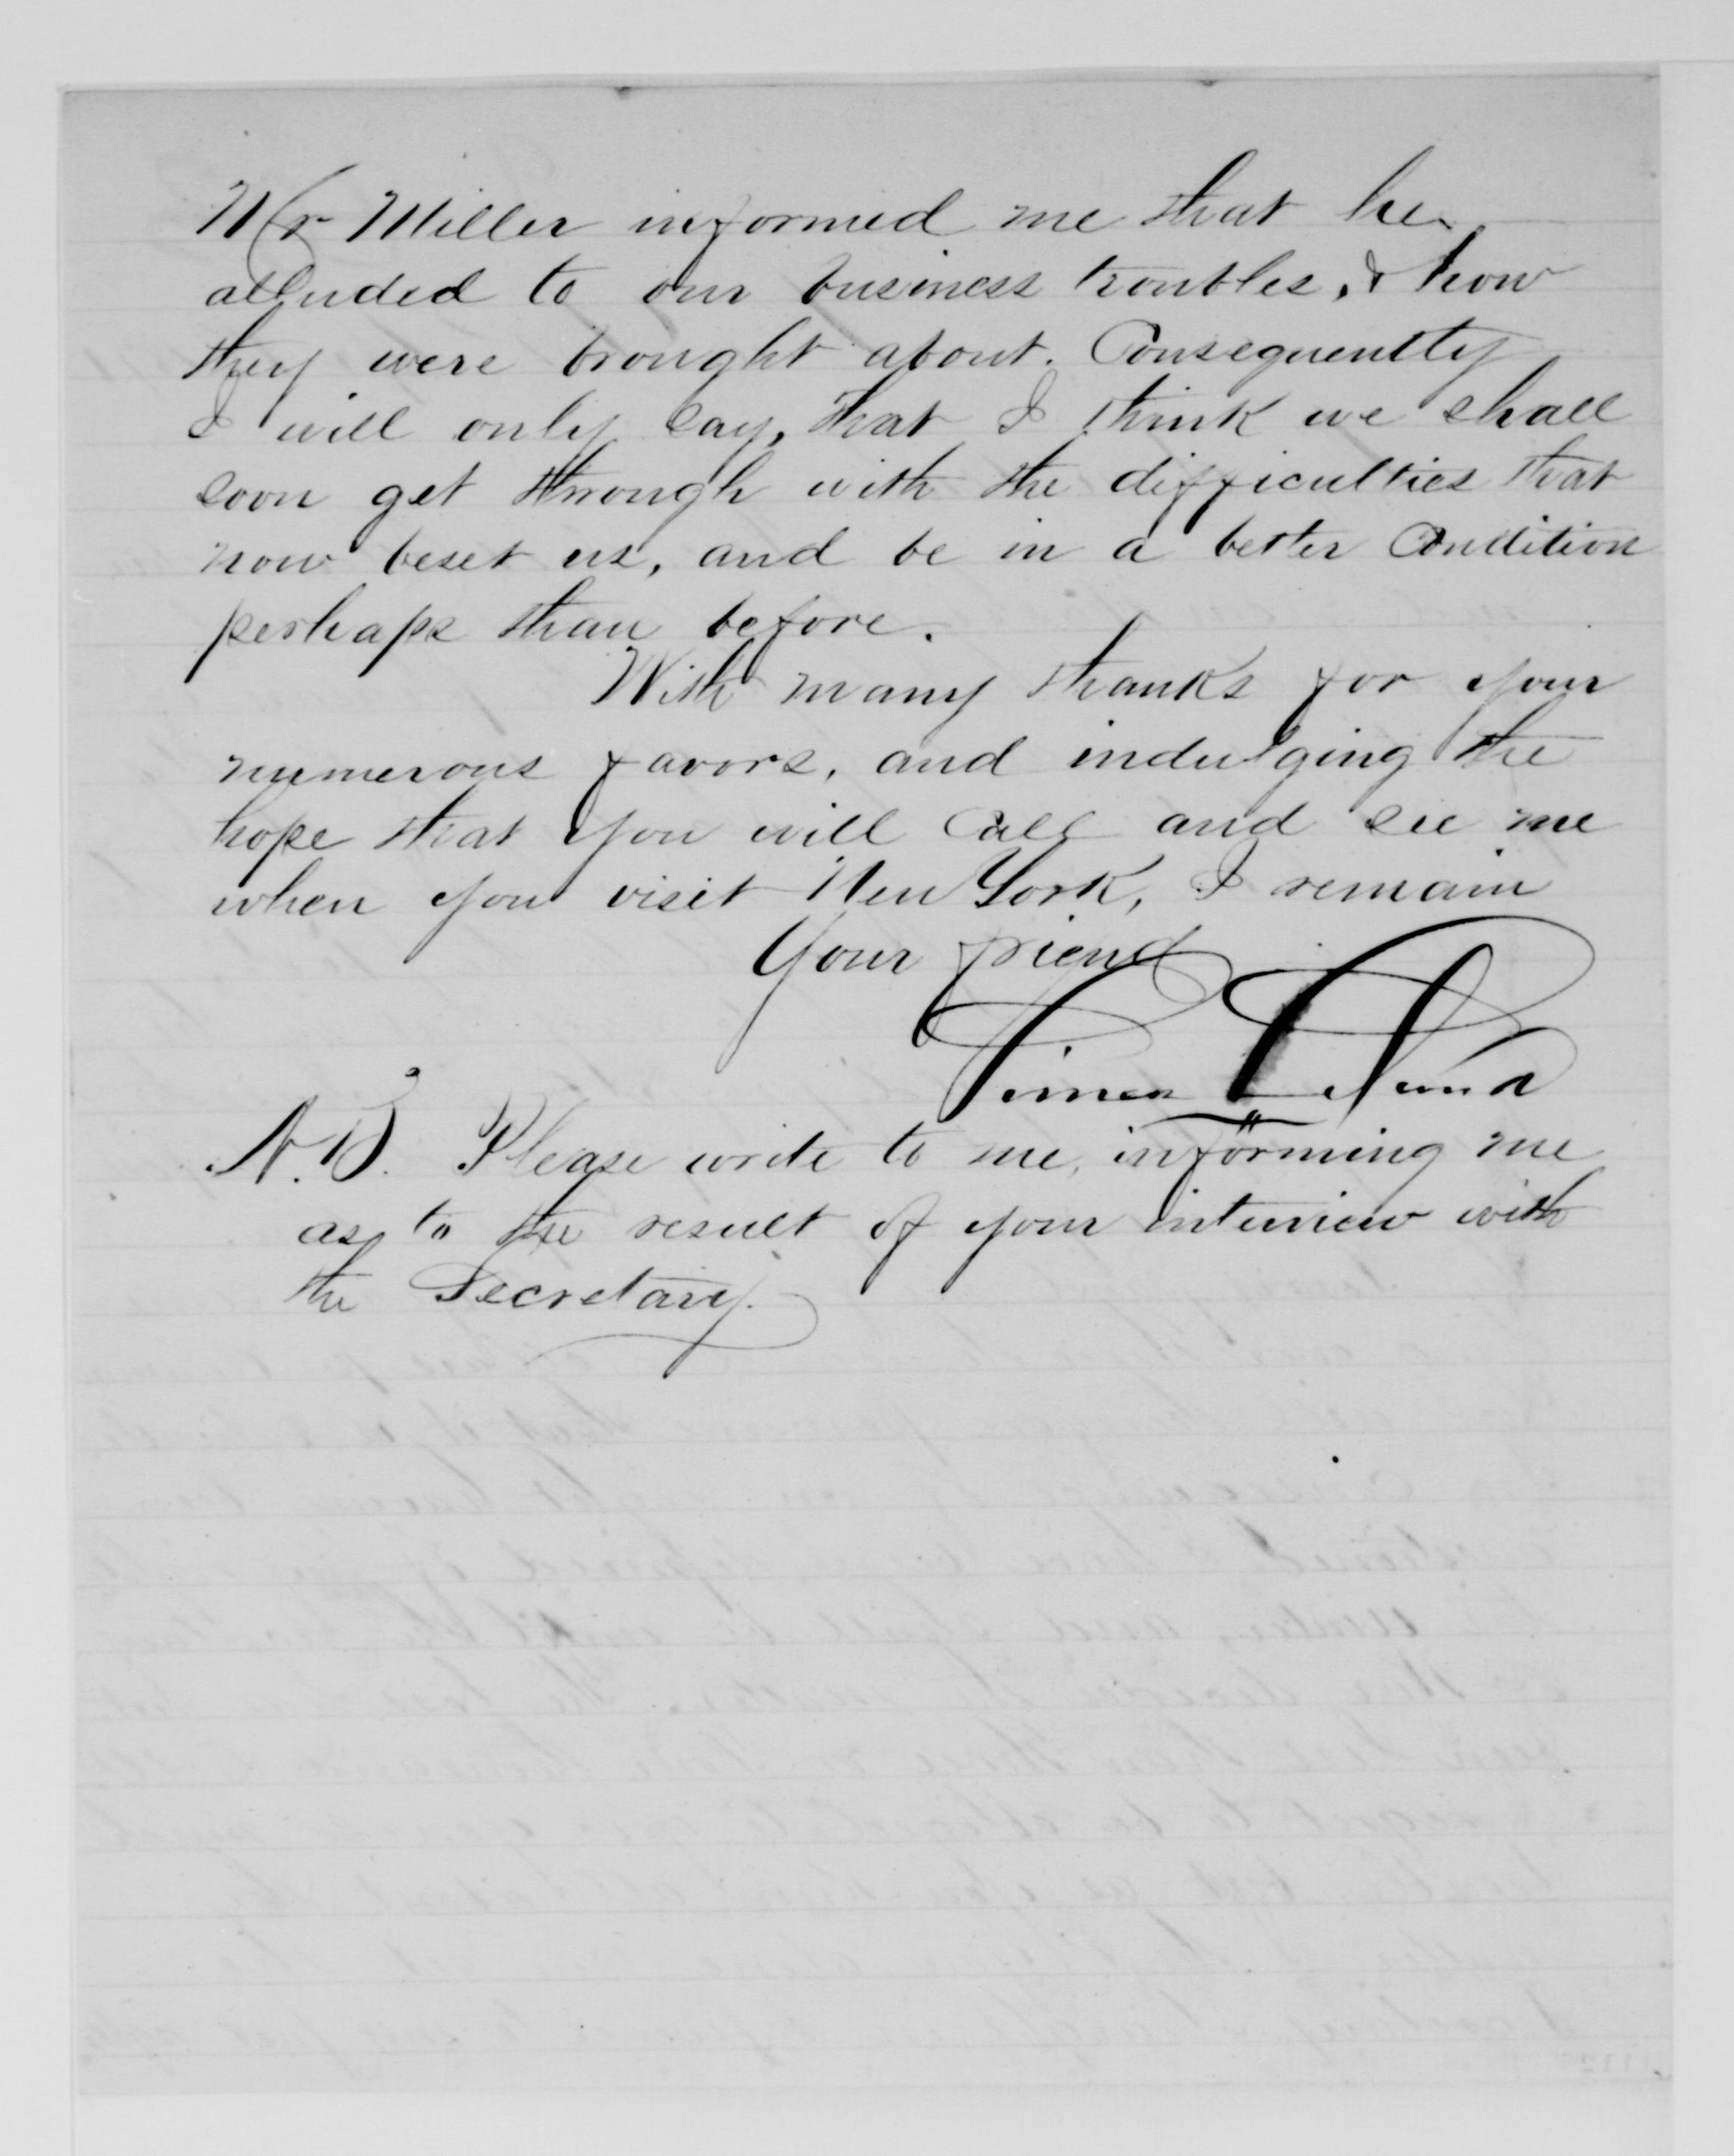 Mr Miller informed me that he
alluded to our business troubles, & how
they were brought about. Consequently
I will only say, that I think we shall
soon get through with the difficulties that
now beset us, and be in a better Condition
perhaps than before.
With many thanks for your
numerous favors, and indulging the
hope that you will Call and see me
when you visit New York, I remain
Your friend
Simeon Leland
N.B. Please write to me, informing me
as to the result of your interview with
the Secretary.